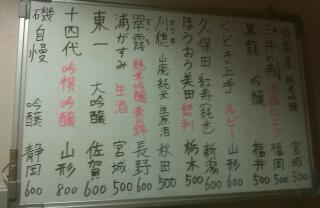 伯楽星 純米吟醸 宮城 500
三井の寿 福岡 500
黒龍 吟醸 福井 500
くどき上手 ルビー 山形 600
久保田 紅寿(純米) 新潟 600
ほうおう美田 髭判 栃木 500
刈穂 山廃純米 生原酒 秋田 500
かりほ
翠露 純米吟醸 美山錦 長野 600
すいろ
浦がすみ 生酒 宮城 500
東一 大吟醸 佐賀 600
十四代 吟撰 吟醸 山形 800
磯自慢 吟醸 静岡 600